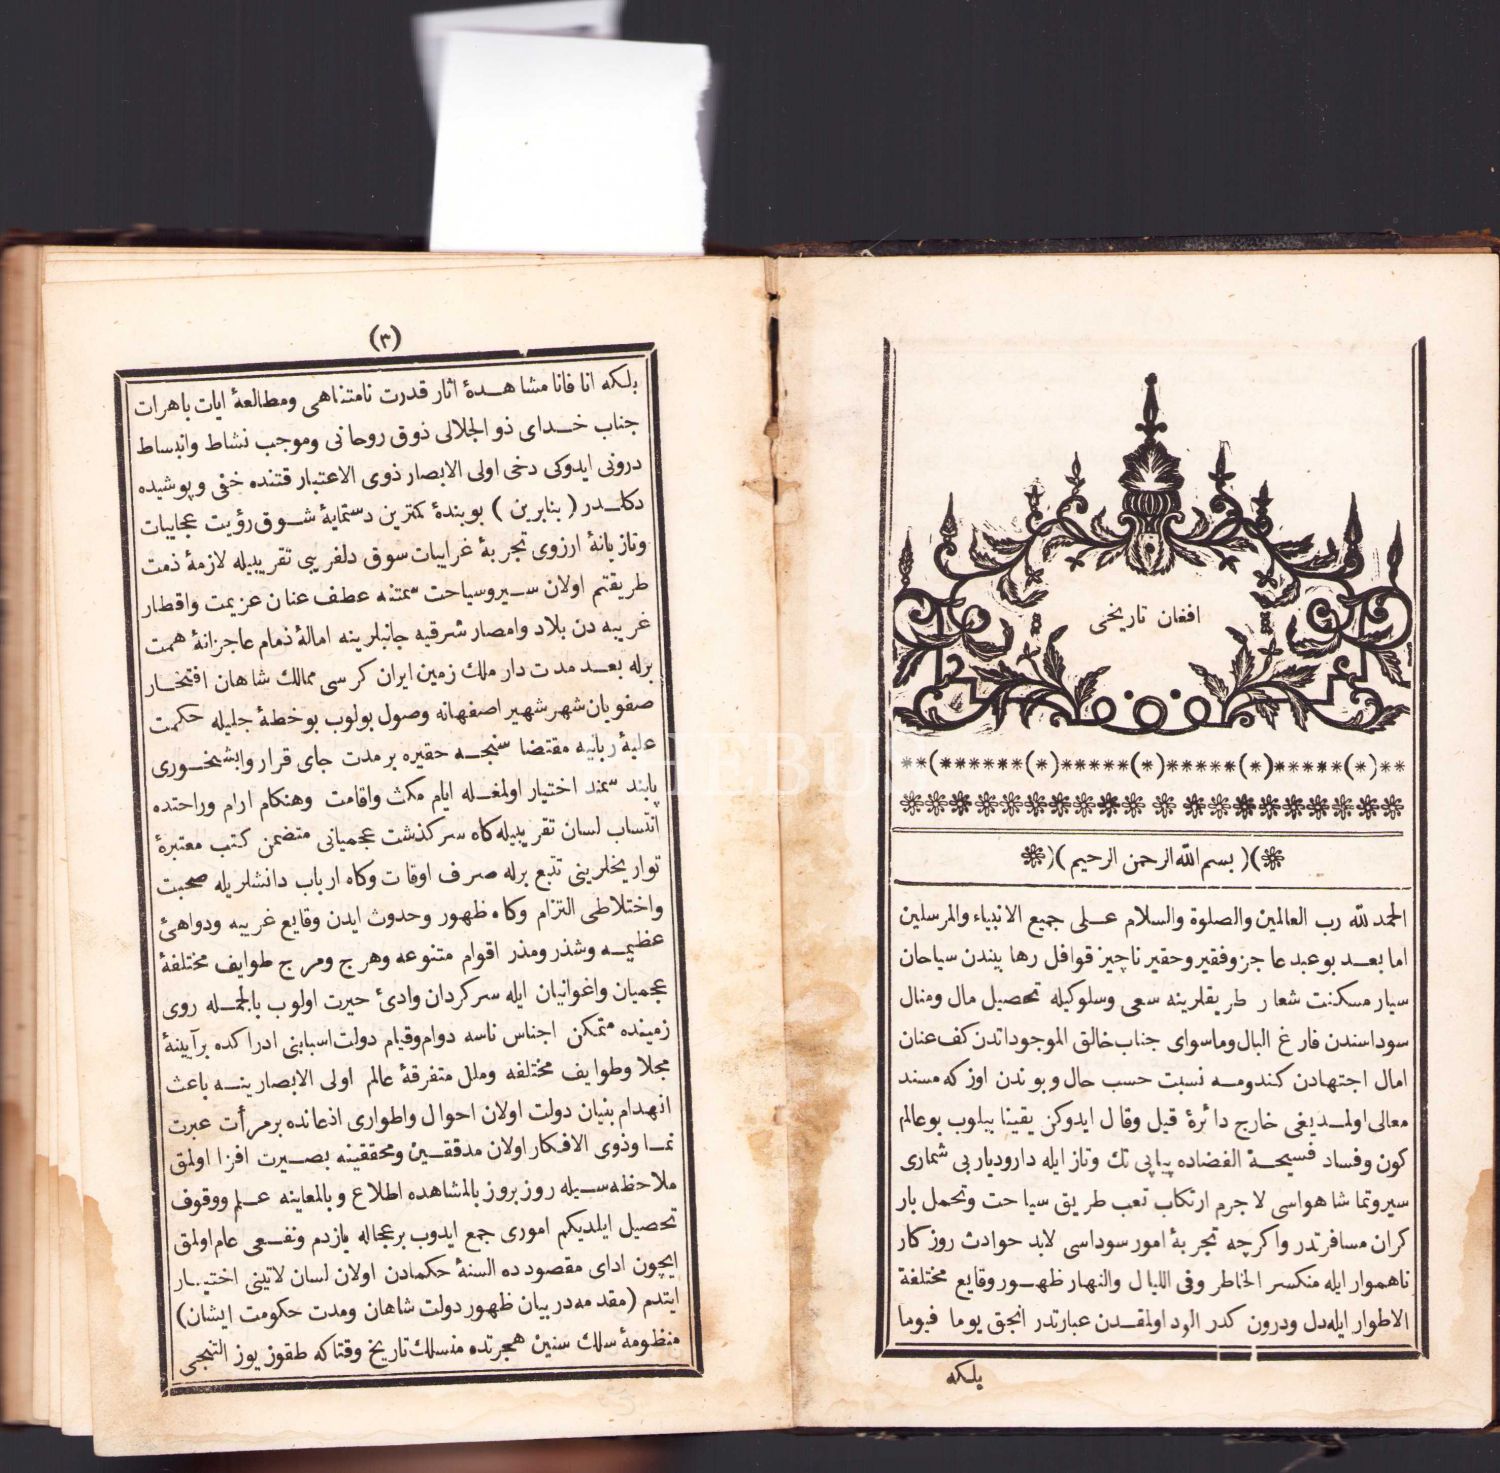 افغان تاریخی
بسم الله الرحمن الرحیم
الحمد لله رب العالمین والصلوة والسلام علی جمیع الانبیاء والمرسلین
اما بعد بو عبد عاجز وفقیر وحقیر ناچیز قوافل رها بیندن سیاحان
سیار مسکنت شعار طریقلرینه سعی وسلوکیله تحصیل مال ومنال
سوداسندن فارغ البال وماسوای جناب خالق الموجوداتدن کف عنان
امال اجتهادن کندومه نسبت حسب حال وبوندن اوزکه مسند
معالی اولمدیغی خارج دائرهٔ قیل وقال ایدوکن یقینا بیلوب بو عالم
کون وفساد فسیحة الفضاده پیاپی تك وتاز ایله دارودیار بی شماری
سیروتماشا هواسی لاجرم ارتکاب تعب طریق سیاحت وتحمل بار
کران مسافرتدر واکرچه تجربهٔ امور سوداسی لابد حوادث روزکار
ناهموار ایله منکسر الخاطر وفی اللیال والنهار ظهور وقایع مختلفة
الاطوار ایله دل ودرون کدر الود اولمقدن عبارتدر انجق یوما فیوما
بلکه
(٣)
بلکه انا فانا مشاهدهٔ اثار قدرت نامتناهی ومطالعهٔ ایات باهرات
جناب خدای ذو الجلالی ذوق روحانی وموجب نشاط وانبساط
درونی ایدوکی دخی اولی الابصار ذوی الاعتبار قتنده خفی وپوشیده
دکلدر (بنابرین) بو بندهٔ کمترین دستمایهٔ شوق رؤیت عجایبات
وتازیانهٔ ارزوی تجربهٔ غرایبات سوق دلفریبی تقریبیله لازمهٔ ذمت
طریقتم اولان سیروسیاحت سمتنه عطف عنان عزیمت واقطار
غریبه دن بلاد وامصار شرقیه جانبلرینه امالهٔ ذمام عاجزانهٔ همت
برله بعد مدت دار ملك زمین ایران کرسی ممالك شاهان افتخار
صفویان شهر شهیر اصفهانه وصول بولوب بو خطهٔ جلیله حکمت
علیهٔ ربانیه مقتضاسنجه حقیره بر مدت جای قرار وابشخوری
پابند سمند اختیار اولمغله ایام مکث واقامت وهنکام ارام وراحتده
انتساب لسان تقریبیله کاه سرکذشت عجمیانی متضمن کتب معتبرهٔ
تواریخلرینی تتبع برله صرف اوقات وکاه ارباب دانشلریله صحبت
واختلاطی التزام وکاه ظهور وحدوث ایدن وقایع غریبه ودواهیٔ
عظیمه وشذر ومذر اقوام متنوعه وهرج ومرج طوایف مختلفهٔ
عجمیان واغوانیان ایله سرکردان وادیٔ حیرت اولوب بالجمله روی
زمینده متمکن اجناس ناسه دوام وقیام دولت اسبابنی ادراکده برآیینهٔ
مجلا وطوایف مختلفه وملل متفرقهٔ عالم اولی الابصارینه باعث
انهدام بنیان دولت اولان احوال واطواری اذعانده بر مرأت عبرت
نما وذوی الافکار اولان مدققین ومحققینه بصیرت افزا اولمق
ملاحظه سیله روز بروز بالمشاهده اطلاع وبالمعاینه علم ووقوف
تحصیل ایلدیکم اموری جمع ایدوب بر عجاله یازدم ونفعی عام اولمق
ایچون ادای مقصودده السنهٔ حکمادن اولان لسان لاتینی اختیار
ایتدم (مقدمه دربیان ظهور دولت شاهان ومدت حکومت ایشان)
منظومهٔ سلك سنین هجرتده منسلك تاریخ وقتاکه طقوز یوز التمجی